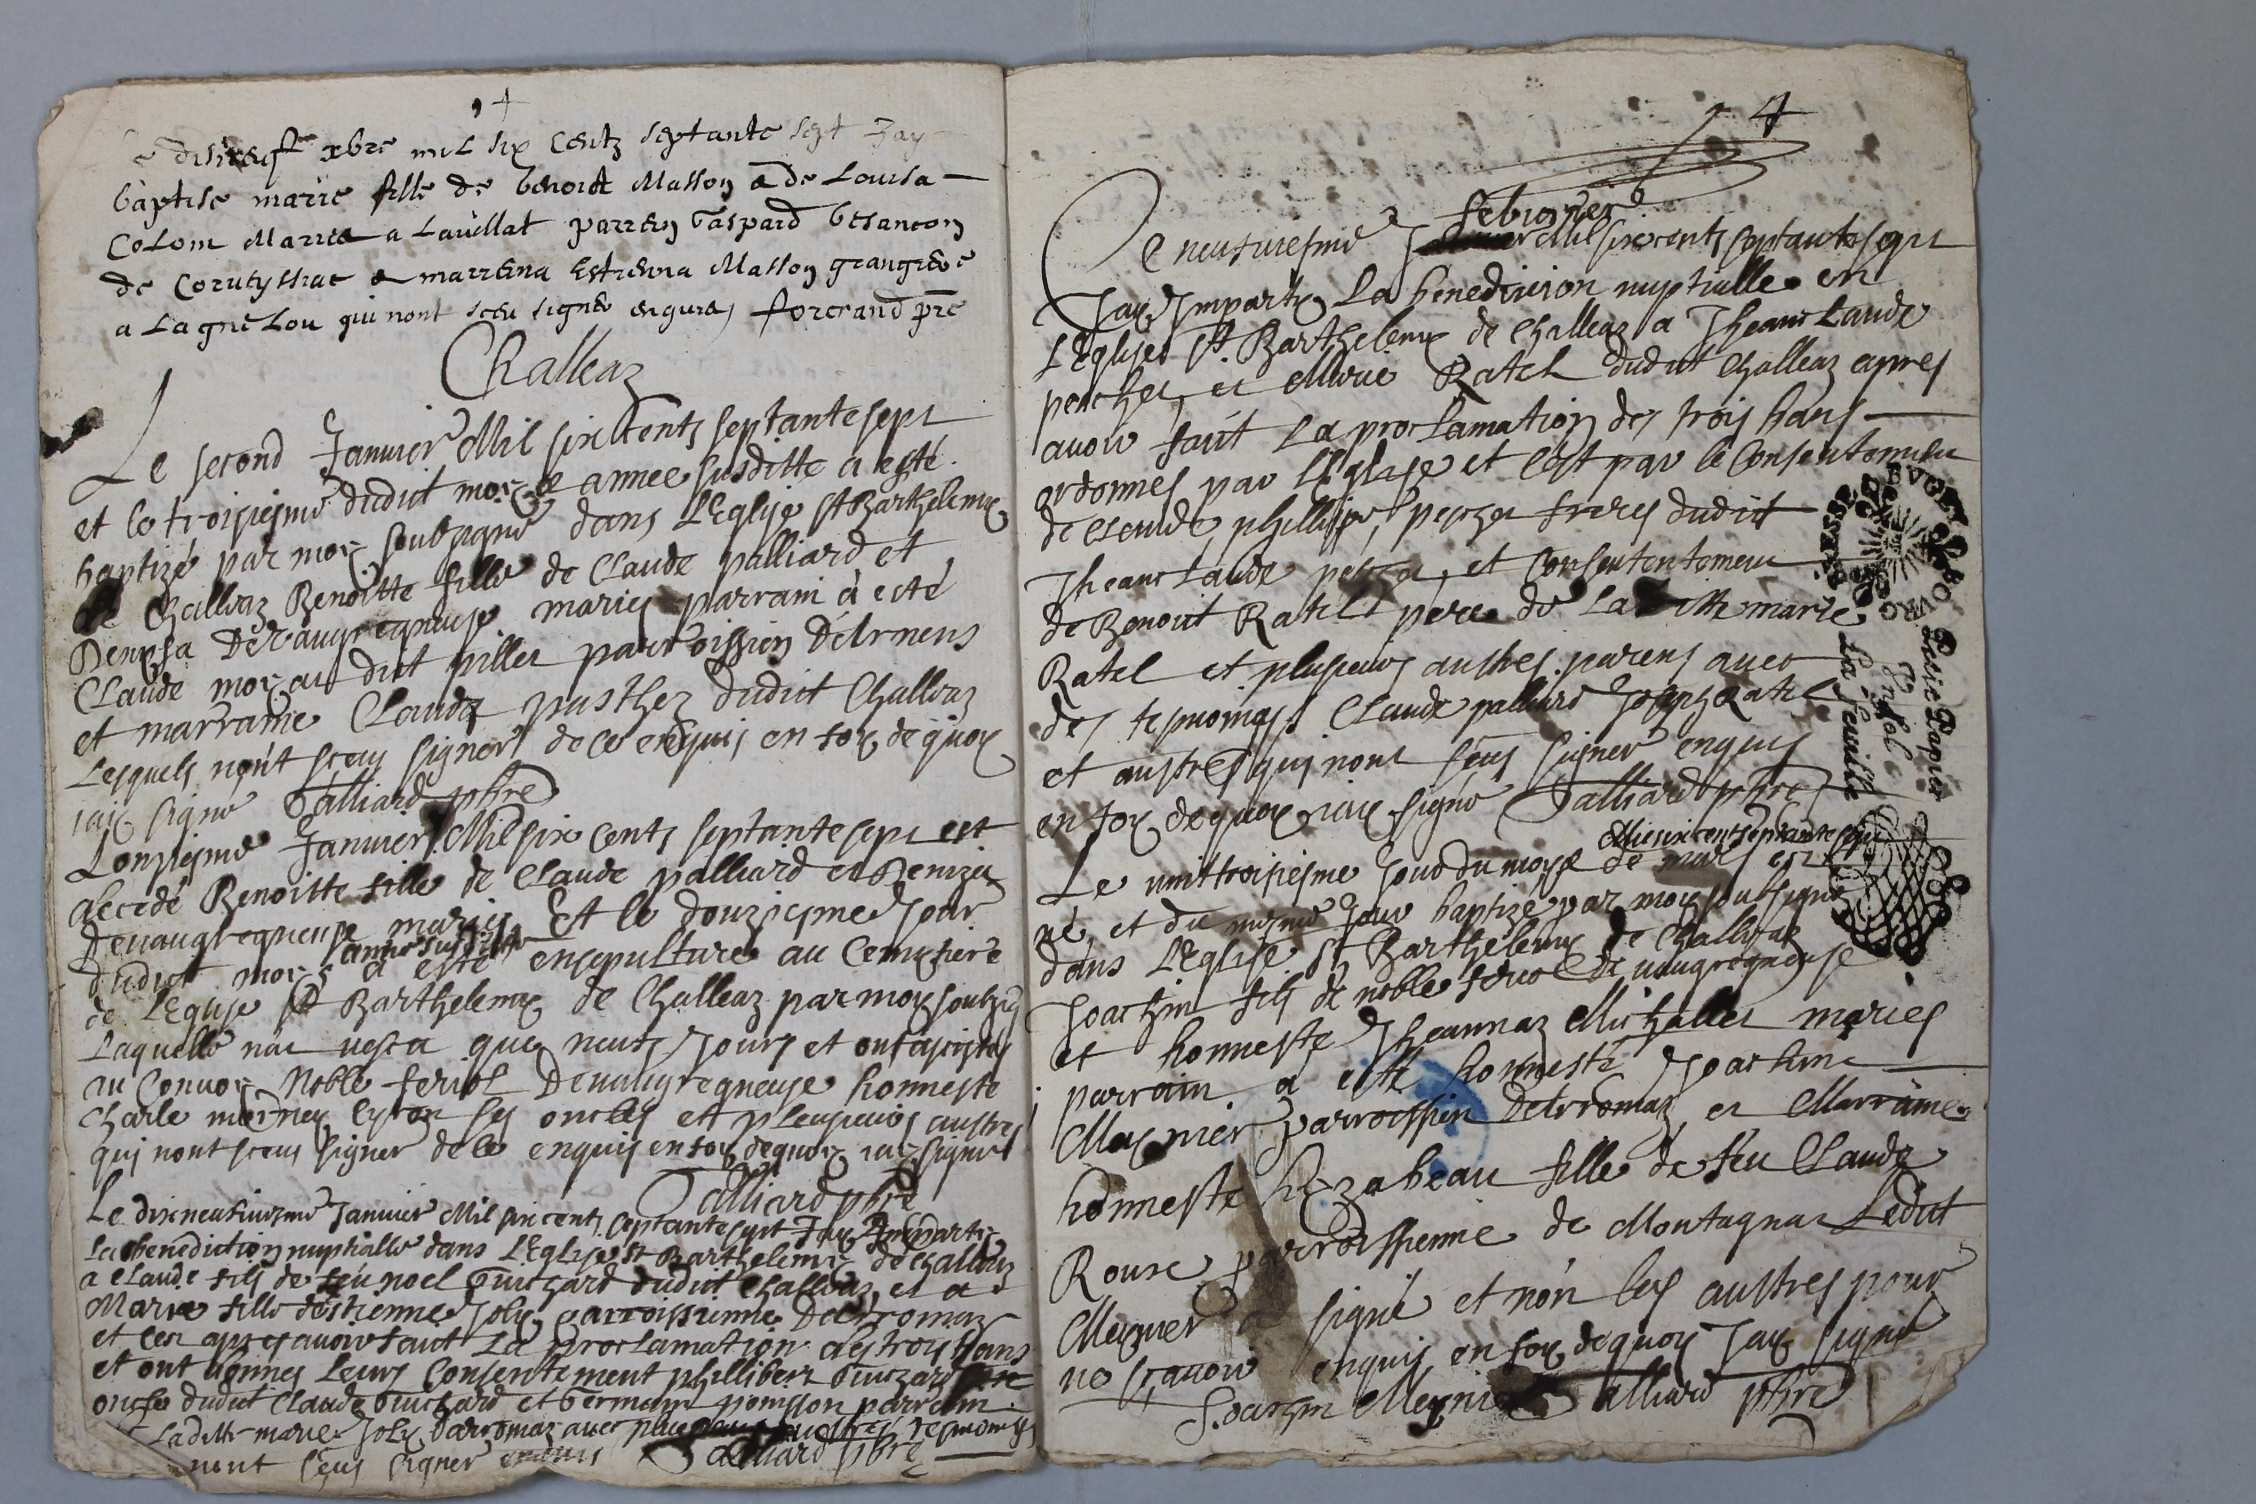 disneuf xbre mil six centz septante sept Jay
baptise marie fille de benoit Masson & de Louisa
Colom Marries a Lavillat parrein Gaspard besancon
de & marrena Estienna Masson grangiere
a Lagnelou qui nont sceu signer enquis, forcrand pre
Challeaz
Le second Janvier Mil six cents septante sept
et le troisiesme dudict moy & annee susditte a esté
baptizé par moy soubsigné dans L'Eglise st Barthelemy
de Challeaz Benoitte fille de Claude palliard et
Denysa Devaugregneuse mariez parrain à esté
Claude parroissien
et marraine Clauda dudict Challeaz
Lesquels nont sceu signer de ce enquis en foy de quoy
iay signé Palliard pbre
L'onziesme Janvier Mil six cents septante sept est
decedé Benoitte fille de Claude palliard et Deniza
Devaugregneuse mariez Et le douziesme Jour
dudict moys annee susditte a esté ensepulturé au Cemetiere
de L'Eglise st Barthelemy de Challeaz par moy soubzsig
Laquelle na vescu que neufz Jours et ont assistes
au Convoy Noble feriol Devaugregneuse honneste
Charle ses oncles et plusieurs austres
qui nont sceus signer de ce enquis en foy de quoy iay signé
Palliard pbre
Le dixneufiviesme Janvier Mil six cents septante sept Jay Imparty
La benediction nuptialle dans L'Eglise st Barthelemy de Challeaz
a Claude fils de feu noel Guichard dudict Challeaz et a
Marie fille d'estienne Joly parroissienne
et ce apres avoir faict La proclamation des trois bans
et ont donnes Leurs Consentement phillibert Guichard
oncle dudict Claude Guichard et Germain ponsson parrain
Laditte marie Joly avec plusieurs austres tesmoings
nont sceus signer enquis Palliard pbre
4
febvrier
Le neufviesme Mil six cents septante sept
Jay Imparty La benediction nuptialle en
L'Eglise st. Barthelemy de Challeaz a Jheanclaude
et Marie Ratel dudict Challeaz apres
avoir faict La proclamation des trois bans
ordonnes par L'Eglise et c'est par le Consentement
de Claude, phillippe, freres dudict
Jheanclaude et Consentement
de Benoict Ratel pere de Laditte marie
Ratel et plusieurs austres parens avec
des tesmoings Claude palliard Joseph Ratel
et austres qui nont sceus signer enquis
en foy de quoy iay signé Palliard pbre
Mil six cent septante sept
Le vint troisiesme Jour du moys de mars est
né, et du mesme Jour baptizé par moy soubsigné
dans L'Eglise st Barthelemy de Challeaz
Joachin fils de noble de vaugregneuse
et honneste Jheannaz Michallet mariés
parrain a esté honnesté Joachim
Meynier parroissien et Marraine
honneste fille de feu Claude
Roux parroissienne de Montagnat Ledict
Meynier a signé et non les austres pour
ne sçavoir enquis, en foy de quoy Jay signé
Joachin Meynier Palliard pbre
Petit Papier
La feuille